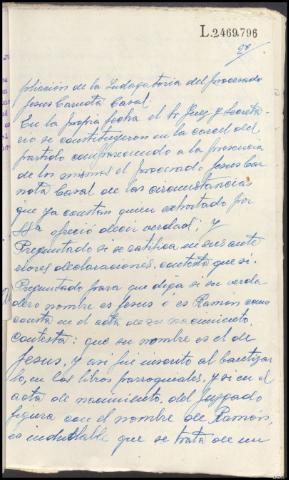 L.2469.796
28
pliación de la Indagatoria del procesado
Jesus Canota Casal.
En la propia fecha el Sr Juez y Secreta-
rio se constituyeron en la carcel del
partido compareciendo a la presencia
de los mismos el procesado Jesus Ca-
nota Casal de las circunstancias
que ya constan quien exhortado por
S.Sª ofreció decir verdad; y
Preguntado si se ratifica en sus ante
riores declaraciones, contesta que si.
Preguntado para que diga si su verda
dero nombre es Jesus o es Ramon como
consta en el acta de su nacimiento,
contesta: que su nombre es el de
Jesus, y asi fue inscrito al bautizar
lo, en los libros parroquiales, y si en el
acta de nacimiento del Juzgado
figura con el nombre de Ramon,
es indudable que se trata de un